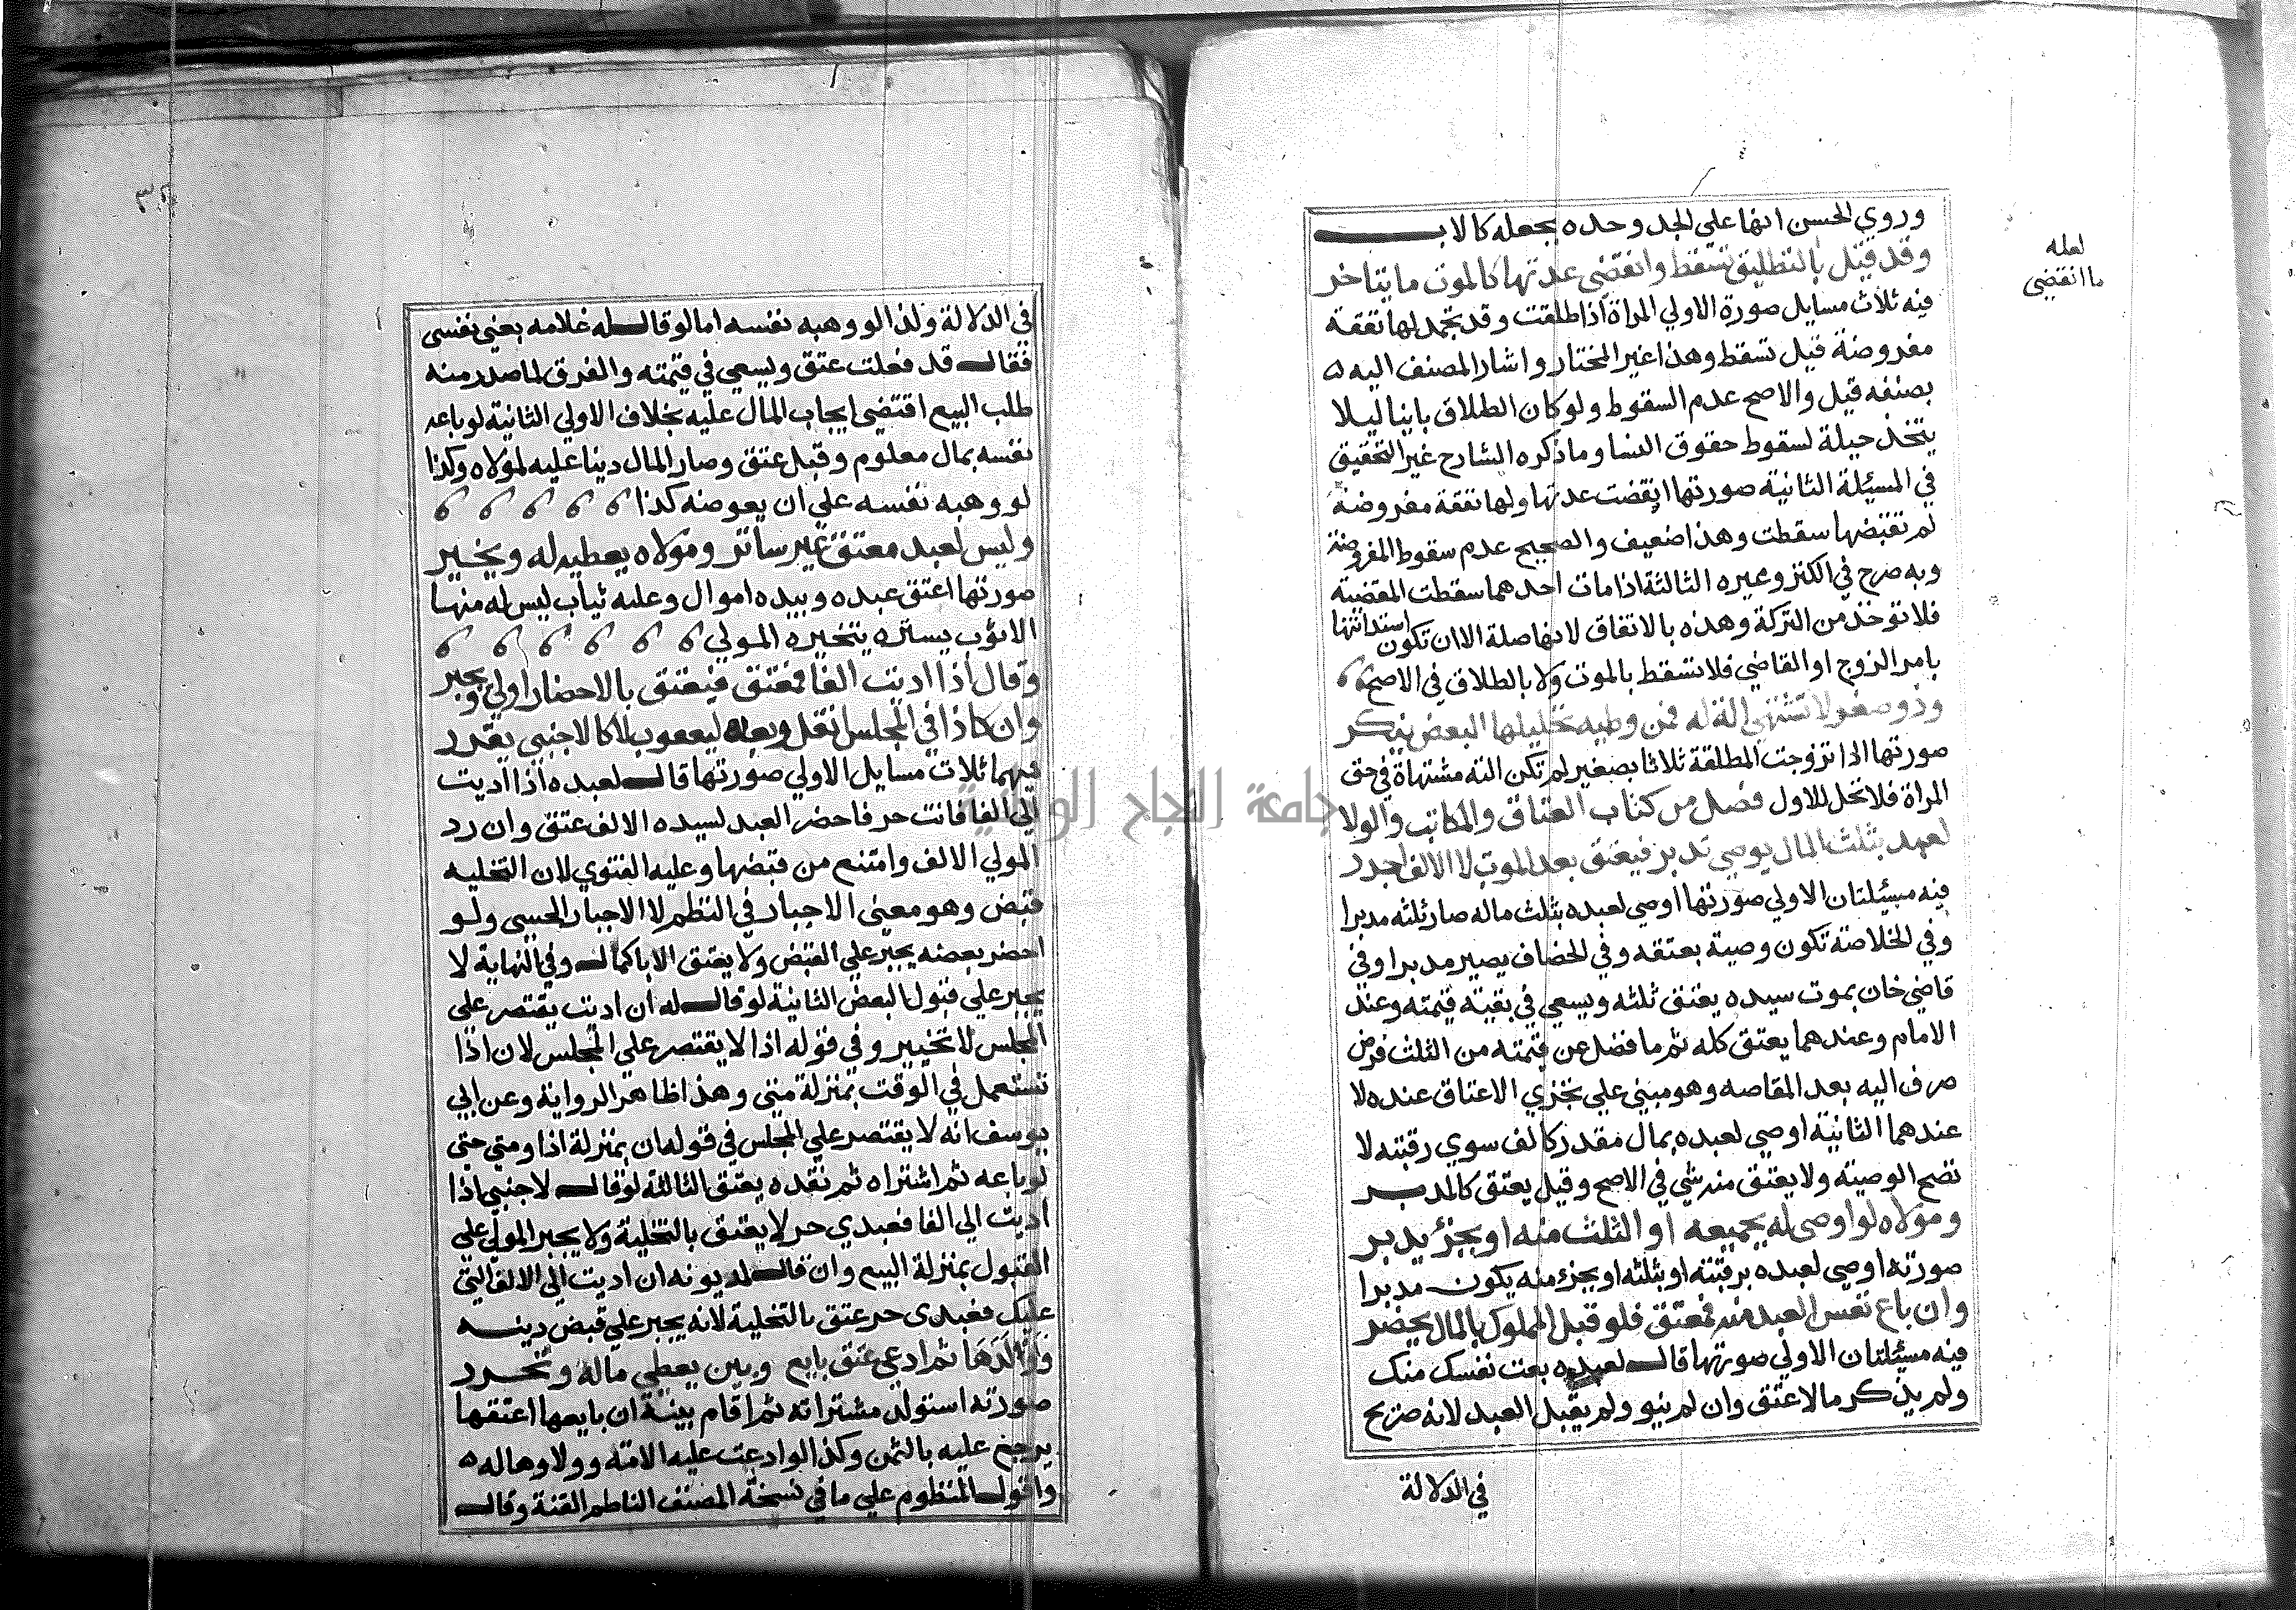 وروي الحسن انها علي الجد وحده بجعله كالاب
وقد قيل بالتطليق تسقط وانقضي عدتها كالموت ما يتاخر
لعله
ما انقضي
فيه ثلاث مسايل صورة الاولي المراة اذا طلقت وقد تجمد لها نفقة
مفروضة قيل تسقط وهذا غير المختار واشار المصنف اليه
بصنفه قيل والاصح عدم السقوط ولو كان الطلاق باينا ليلا
يتخذ حيلة لسقوط حقوق النسا وما ذكره الشارح غير التحقيق
في المسئلة الثانية صورتها انقضت عدتها ولها نفقة مفروضة
لم تقبضها سقطت وهذا ضعيف والصحيح عدم سقوط المفروضة
وبه صرح في الكنز وغيره الثالثة اذا مات احدهما سقطت المقضية
فلا توخذ من التركة وهذه بالاتفاق لانها صلة الا ان تكون استدانتها
بامر الزوج او القاضي فلا تسقط بالموت ولا بالطلاق في الاصح
وذو صغر لا تشتهي الة له فمن وطيه تحليلها البعض ينكر
صورتها اذا تزوجت المطلقة ثلاثا بصغير لم تكن الته مشتهاة في حق
المراة فلا تحل للاول فصل من كتاب العتاق والمكاتب والولا
لعبد بثلث المال يوصي تدبر فيعتق بعد الموت لا الالف اجدر
فيه مسيئلتان الاولي صورتها اوصي لعبده بثلث ماله صار ثلثه مدبرا
وفي الخلاصة تكون وصية بعتقه وفي الخصاف يصير مدبرا وفي
قاضي خان بموت سيده يعتق ثلثه ويسعي في بقية قيمته وعند
الامام وعندهما يعتق كله ثم ما فضل عن قيمته من الثلث فرض
صرف اليه بعد المقاصه وهو مبني علي تجزي الاعتاق عنده لا
عندهما الثانية اوصي لعبده بمال مقدر كالف سوي رقبته لا
تصح الوصية ولا يعتق منه شي في الاصح وقيل يعتق كالمدبر
ومولاه لو اوصي له بجميعه او الثلث منه او بجزئ يدبر
صورته اوصي لعبده برقبته او بثلثه او بجزء منه يكون مدبرا
وان باع نفس العبد منه فمعتق فلو قبل المملوك بالمال يحضر
فيه مسيئلتان الاولي صورتها قال لعبده بعت نفسك منك
ولم يذكر مالا عتق وان لم ينو ولم يقبل العبد لانه صريح
في الدلالة
في الدلالة ولذا لو وهبه نفسه اما لو قال له غلامه بعني نفسي
فقال قد فعلت عتق ويسعي في قيمته والفرق لما صدر منه
طلب البيع اقتضي ايجاب المال عليه بخلاف الاولي الثانية لو باعه
نفسه بمال معلوم وقبل عتق وصار المال دينا عليه لمولاه وكذا
لو وهبه نفسه علي ان يعوضه كذا
وليس لعبد معتق غير ساتر ومولاه يعطيه له ويخير
صورتها اعتق عبده وبيده اموال وعليه ثياب ليس له منها
الا ثوب يستره يتخيره المولي
وقال اذا اديت الفا فمعتق فيعتق بالاحضار اولي ويجبر
وان كاذا في المجلس نقل وبعده ليعقوب لا كالاجنبي يقدر
فيهما ثلاث مسايل الاولي صورتها قال لعبده اذا اديت
الي الفا فانت حر فاحضر العبد لسيده الالف عتق وان رد
المولي الالف وامتنع من قبضها وعليه الفتوي لان التخليه
قبض وهو معني الاجبار في النظم لا الاجبار الحسي ولو
احضر بعضه يجبر علي القبض ولا يعتق الا باكمال وفي النهاية لا
يجبر علي قبول البعض الثانية لو قال له ان اديت يقتصر علي
المجلس لا تخيير وفي قوله اذا لا يقتصر علي المجلس لان اذا
تستعمل في الوقت بمنزلة متي وهذا ظاهر الرواية وعن ابي
يوسف انه لا يقتصر علي المجلس في قوله ان بمنزلة اذا ومتي حتي
لو باعه ثم اشتراه ثم نقده يعتق الثالثة لو قال لاجنبي اذا
اديت الي الفا فعبدي حر لا يعتق بالتخلية ولا يجبر المولي علي
القبول بمنزلة البيع وان قال لمديونه ان اديت الي الالف التي
عليك فعبدى حر عتق بالتخلية لانه يجبر علي قبض دينه
واولدها ثم ادعي عتق بايع وبين يعطي ماله وتحرر
صورته استولد مشتراته ثم اقام بينة ان بايعها اعتقها
يرجع عليه بالثمن وكذا لو ادعت عليه الامة وولاوها له
واقول المنظوم علي ما في نسخة المصنف الناظم القنة وقال
جامعة النجاح الوطنية